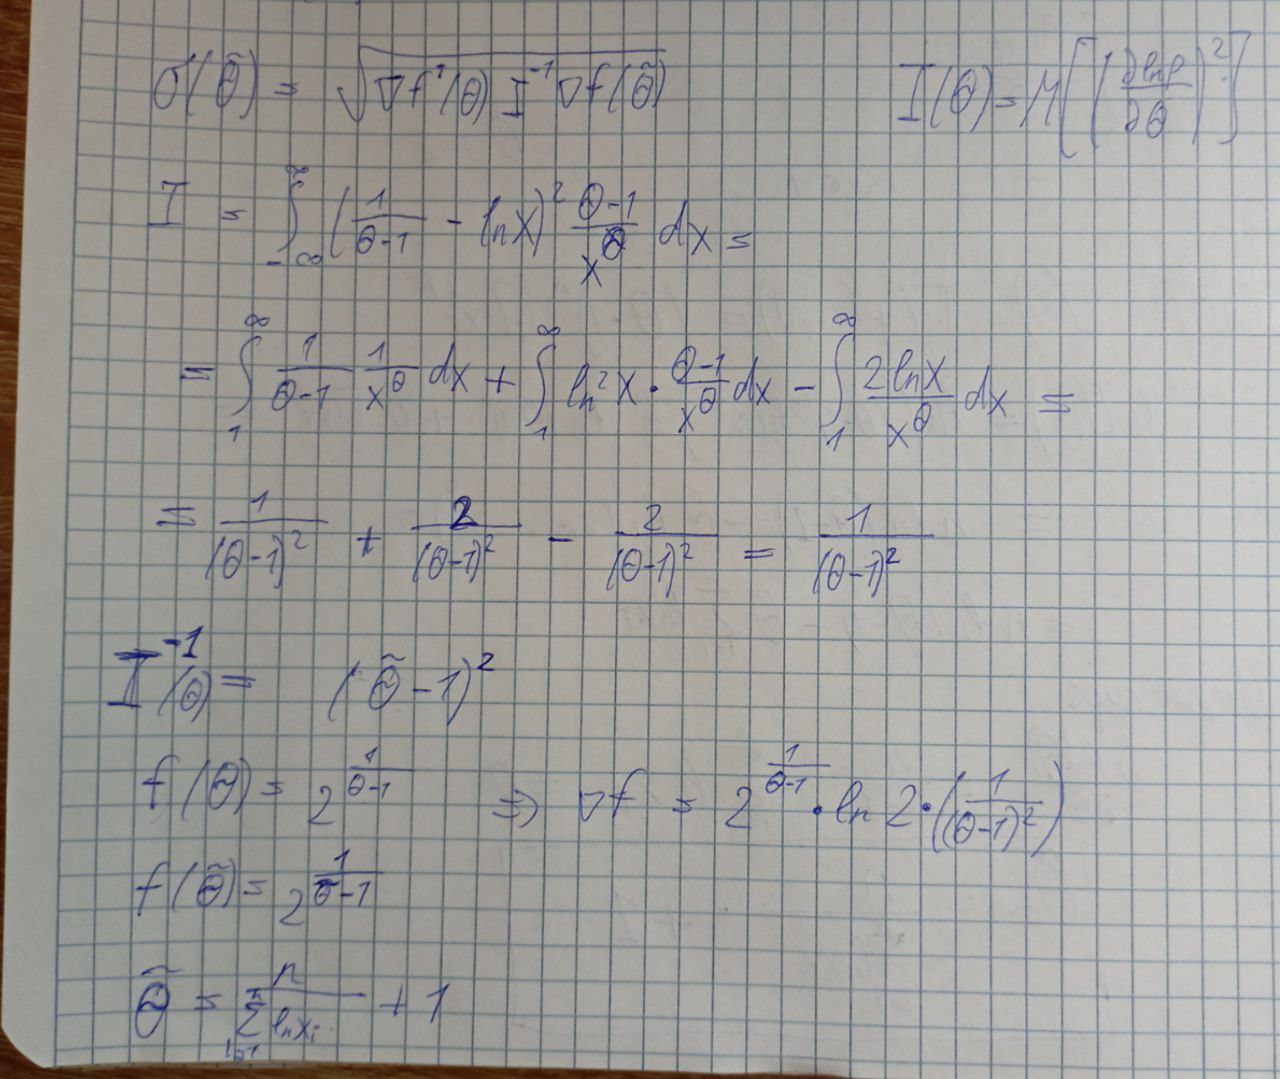 σ(θ̃) = √(∇fᵀ(θ) I⁻¹ ∇f(θ̃)) I(θ) = M[(∂lnp/∂θ)²]
I = ∫_{-∞}^{∞} (1/(θ-1) - ln x)² (θ-1)/x^θ dx =
= ∫_1^∞ 1/(θ-1) 1/x^θ dx + ∫_1^∞ ln²x · (θ-1)/x^θ dx - ∫_1^∞ 2lnx/x^θ dx =
= 1/(θ-1)² + 2/(θ-1)² - 2/(θ-1)² = 1/(θ-1)²
I⁻¹(θ) = (θ̃-1)²
f(θ) = 2^{1/(θ-1)} ⇒ ∇f = 2^{1/(θ-1)} · ln 2 · (1/(θ-1)²)
f(θ̃) = 2^{1/(θ̃-1)}
θ̃ = n/(∑_{i=1}^{n} ln x_i) + 1